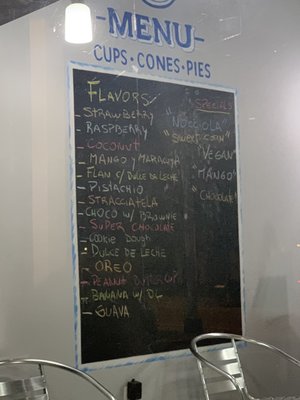 MENU
CUPS · CONES · PIES
FLAVORS
SPECIALS
- STRAWBERRY
- RASPBERRY
- COCONUT
- MANGO y MARACUYA
- FLAN c/ DULCE DE LECHE
- PISTACHIO
- STRACCIATELA
- CHOCO w/ BROWNIE
- SUPER CHOCOLATE
- COOKIE DOUGH
- DULCE DE LECHE
- OREO
- PEANUT BUTTER CUP
- BANANA w/ DL
- GUAVA
"NOCCIOLA"
"SWEET CORN"
"VEGAN"
"MANGO"
"CHOCOLATE"